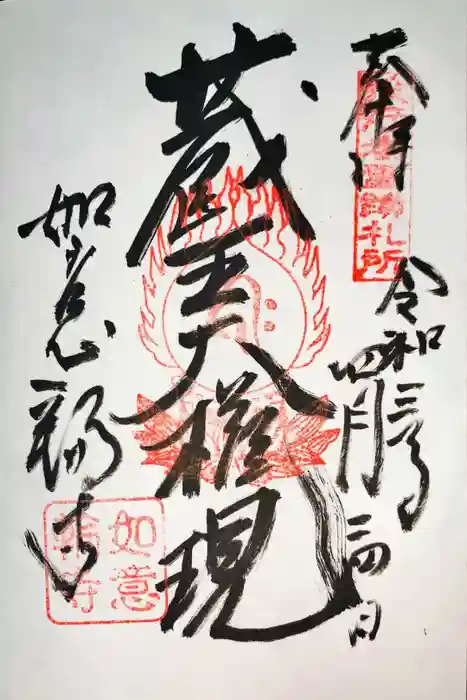 奉拝
蹟札所
令和三年
四月二四日
蔵王大権現
如意輪寺
如意
輪寺